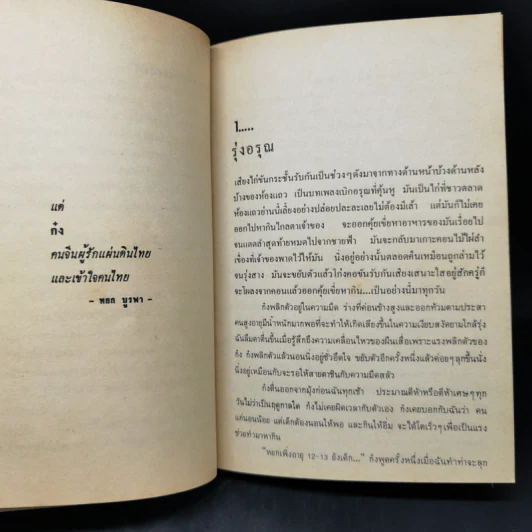 แด่
ก๋ง
คนจีนผู้รักแผ่นดินไทย
และเข้าใจคนไทย
- หยก บูรพา -
1.....
รุ่งอรุณ
เสียงไก่ขันกระชั้นรับกันเป็นช่วงๆดังมาจากทางด้านหน้าบ้างด้านหลัง
บ้างของห้องแถว เป็นบทเพลงเบิกอรุณที่คุ้นหู มันเป็นไก่ที่ชาวตลาด
ห้องแถวย่านนี้เลี้ยงอย่างปล่อยปละละเลยไม่ต้องมีเล้า แต่มันก็ไม่เคย
ออกไปหากินไกลตาเจ้าของ จะออกคุ้ยเขี่ยหาอาหารของมันเรื่อยไป
จนแดดลำสุดท้ายหมดไปจากชายฟ้า มันจะกลับมาเกาะคอนไม้ไผ่ลำ
เขื่องที่เจ้าของพาดไว้ให้มัน นิ่งอยู่อย่างนั้นตลอดคืนเหมือนถูกล่ามไว้
จนรุ่งสาง มันจะขยับตัวแล้วโก่งคอขันรับกันเสียงเสนาะใสอยู่สักครู่ก็
จะโผลงจากคอนแล้วออกคุ้ยเขี่ยหากิน...เป็นอย่างนี้มาทุกวัน
ก๋งพลิกตัวอยู่ในความมืด ร่างที่ค่อนข้างสูงและออกท้วมตามประสา
คนสูงอายุมีน้ำหนักมากพอที่จะทำให้เกิดเสียงขึ้นในความเงียบสงัดยามใกล้รุ่ง
ฉันลืมตาตื่นขึ้นเมื่อรู้สึกถึงความเคลื่อนไหวของผืนเสื่อเพราะแรงพลิกตัวของ
ก๋ง ก๋งพลิกตัวแล้วนอนนิ่งอยู่ชั่วอึดใจ ขยับตัวอีกครั้งหนึ่งแล้วค่อยๆลุกขึ้นนั่ง
นิ่งอยู่เหมือนกับจะรอให้สายตาชินกับความมืดสลัว
ก๋งตื่นออกจากมุ้งก่อนฉันทุกเช้า ประมาณตีห้าหรือตีห้าเศษๆทุก
วันไม่ว่าเป็นฤดูกาลใด ก๋งไม่เคยผิดเวลากับตัวเอง ก๋งเคยบอกกับฉันว่า คน
แก่นอนน้อย แต่เด็กต้องนอนให้พอ และกินให้อิ่ม จะได้โตเร็วๆเพื่อเป็นแรง
ช่วยทำมาหากิน
"หยกเพิ่งอายุ 12-13 ยังเด็ก..." ก๋งพูดครั้งหนึ่งเมื่อฉันทำท่าจะลุก